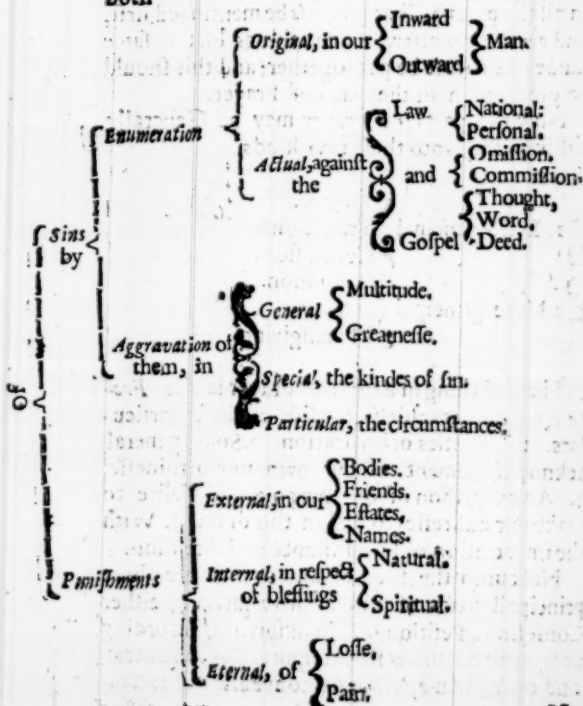 Both
Original, in our
Inward
Outward
Man.
Enumeration
Actual, against
the
Law.
and
Gospel
National:
Perſonal.
Omiſſion.
Commiſſion.
Thought,
Word.
Deed.
Sins
by
Aggravation of
them, in
General
Multitude.
Greatneſſe.
Special, the kindes of ſin.
Particular, the circumſtances.
Of
Puniſhments
External, in our
Bodies.
Friends,
Eſtates,
Names.
Internal, in reſpect
of bleſſings
Natural.
Spiritual.
Eternal, of
Loſſe,
Pain.